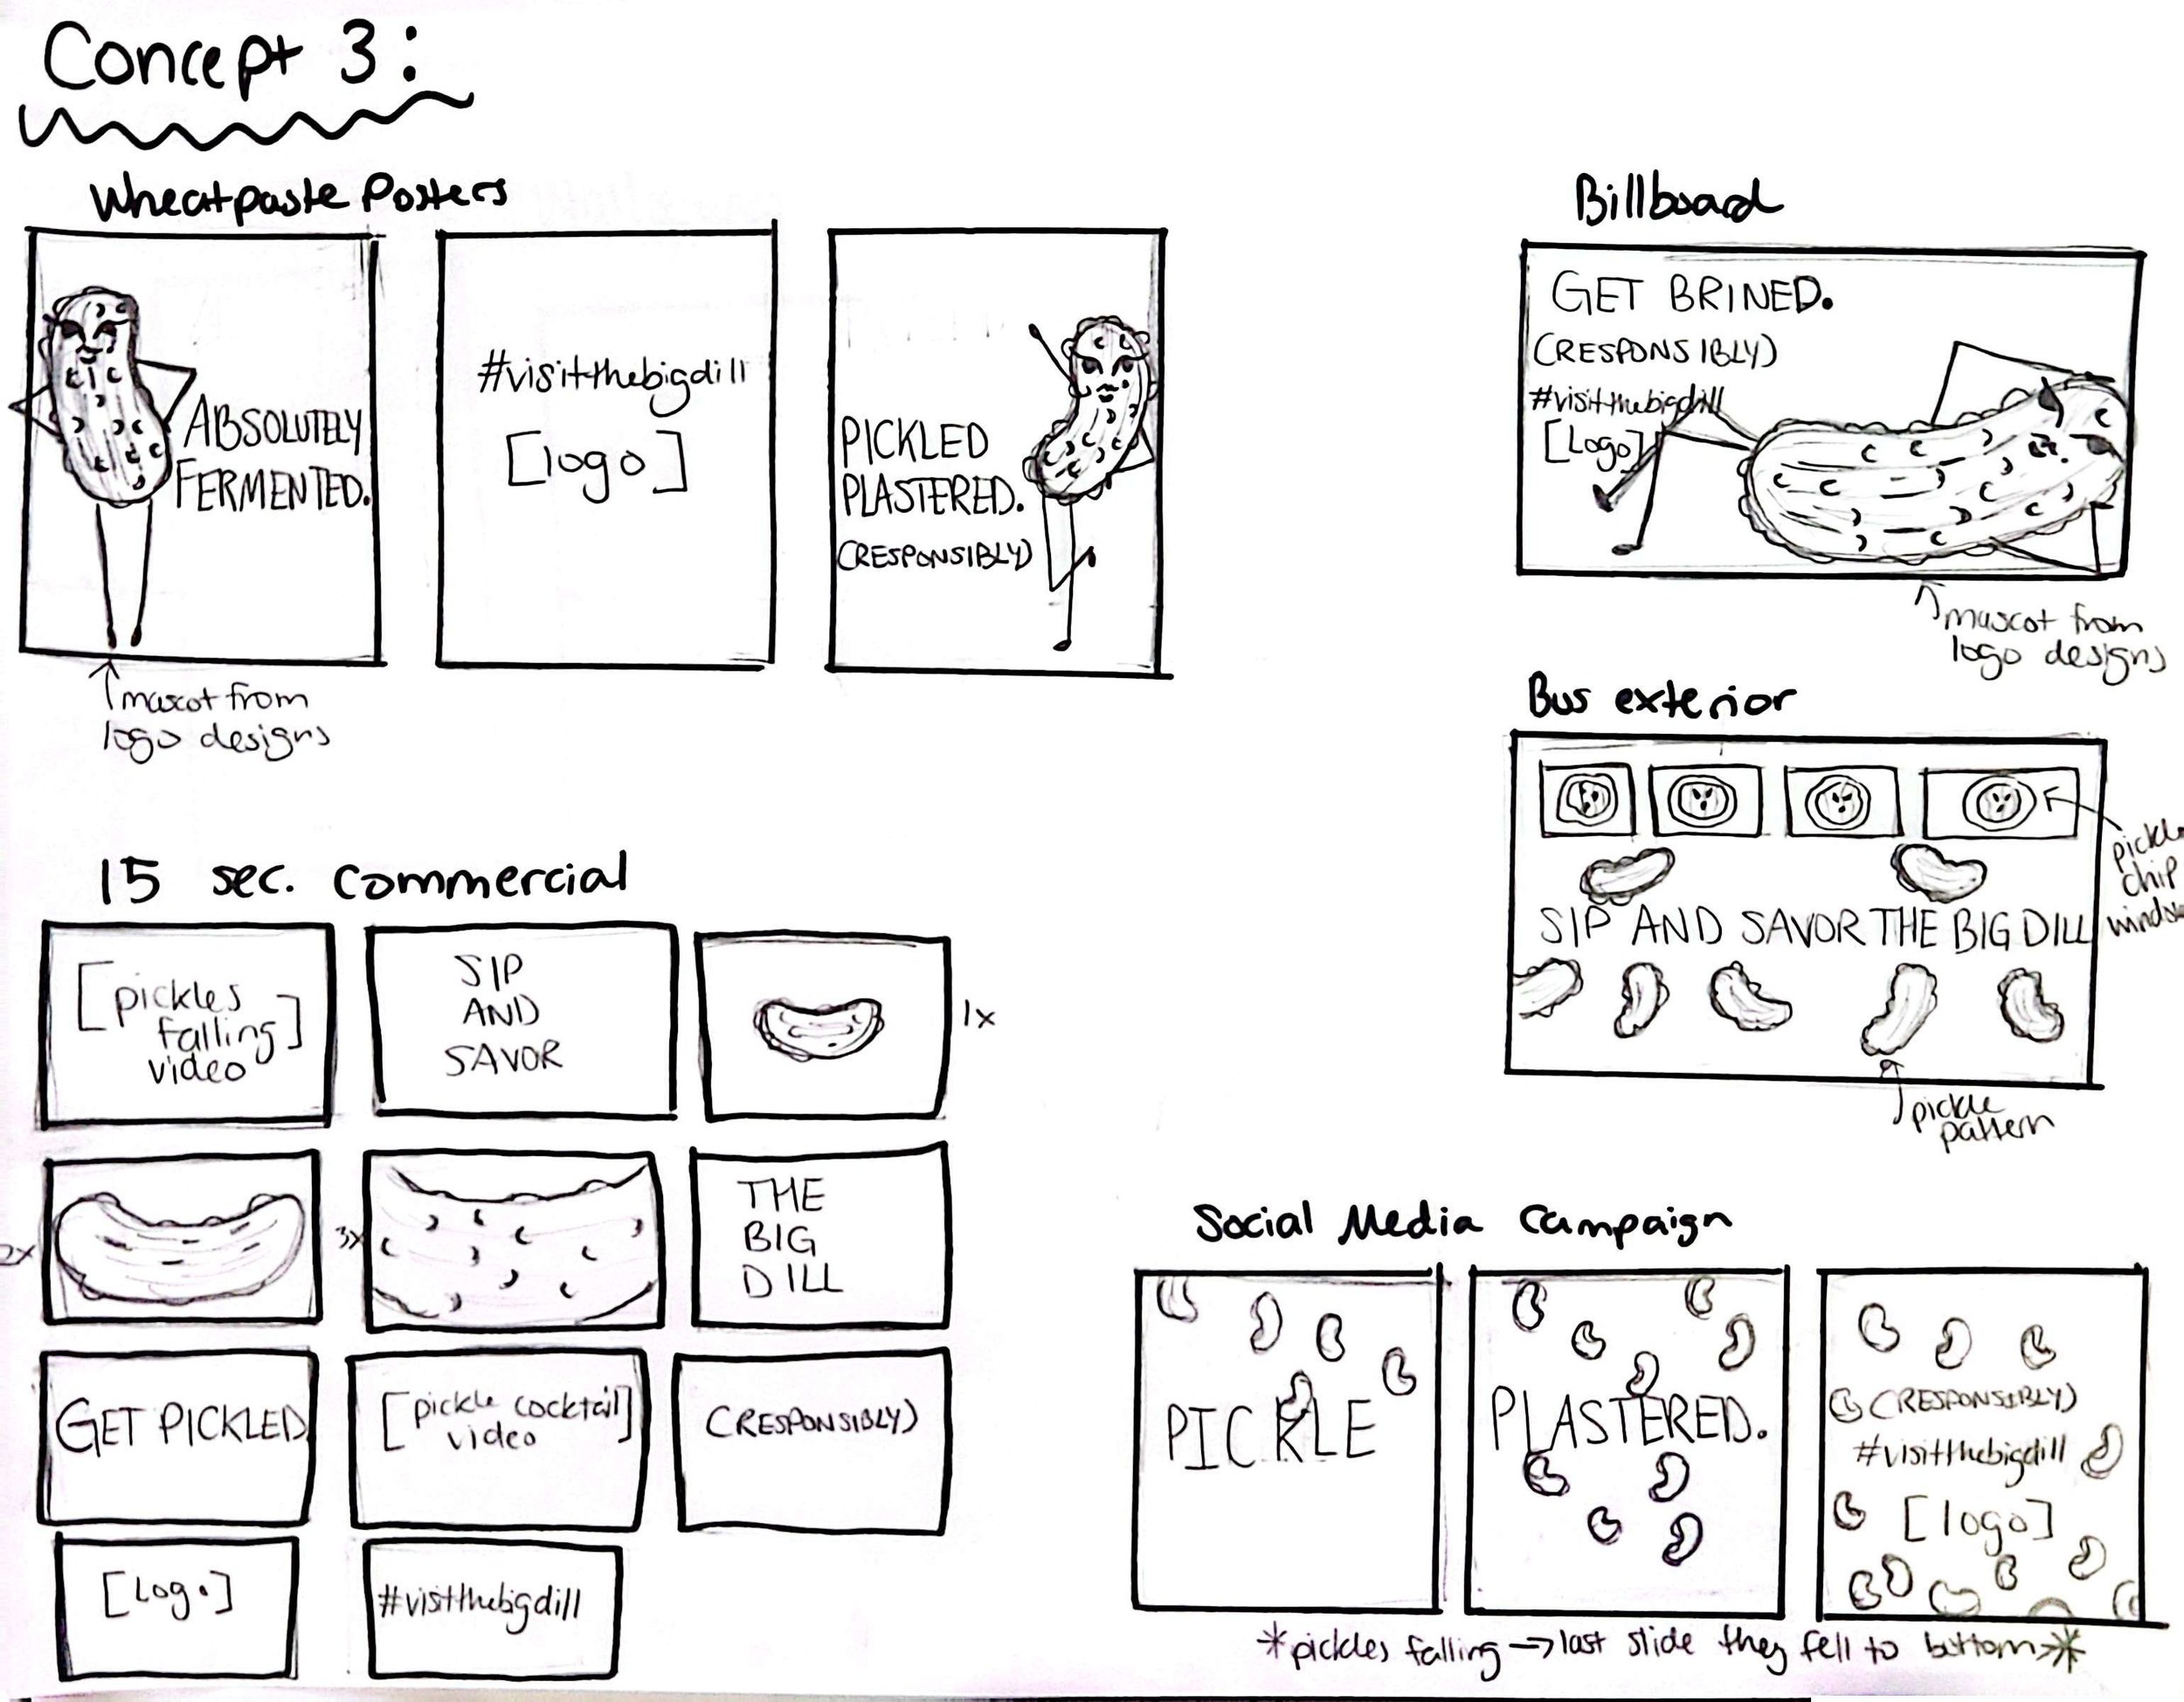 Concept 3:
Wheatpaste Posters
ABSOLUTELY
FERMENTED.
mascot from
logo designs
#visitthebigdill
[logo]
PICKLED
PLASTERED.
(RESPONSIBLY)
Billboard
GET BRINED.
(RESPONSIBLY)
#visitthebigdill
[Logo]
mascot from
logo designs
Bus exterior
pickle
chip
window
SIP AND SAVOR THE BIG DILL
pickle
pattern
15 sec. commercial
[pickles
falling]
video
SIP
AND
SAVOR
1x
2x
3x
THE
BIG
DILL
GET PICKLED
[pickle cocktail]
video
(RESPONSIBLY)
[Logo]
#visitthebigdill
Social Media Campaign
PICKLE
PLASTERED.
(RESPONSIBLY)
#visitthebigdill
[logo]
*pickles falling → last slide they fell to bottom*